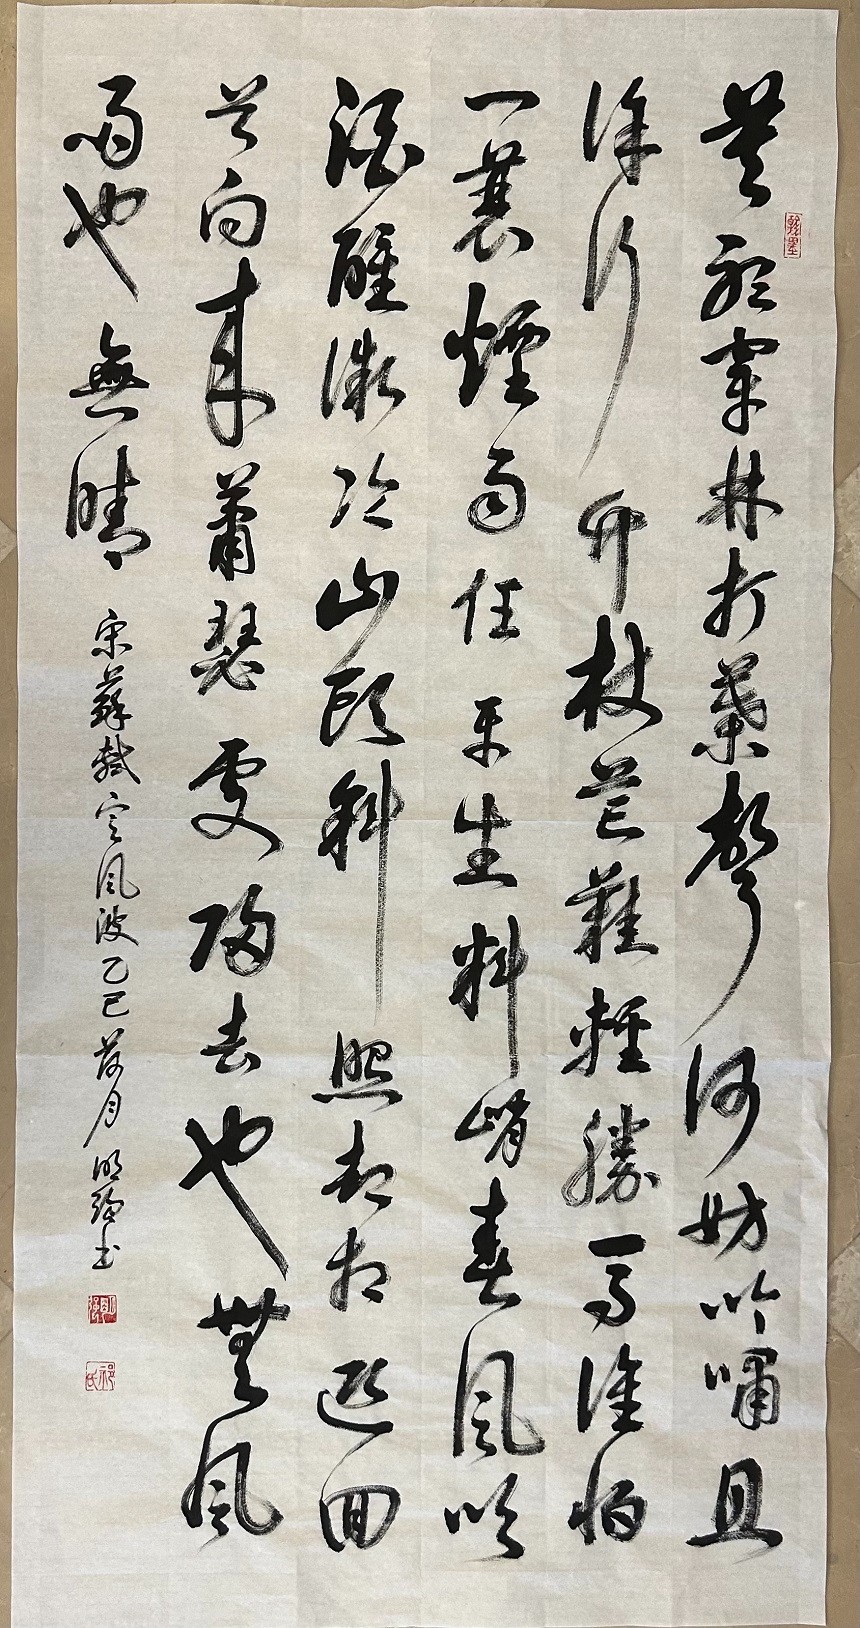 莫聽穿林打葉聲何妨吟嘯且
徐行竹杖芒鞋輕勝馬誰怕
一蓑煙雨任平生料峭春風吹
酒醒微冷山頭斜照却相迎回
首向來蕭瑟處歸去也無風
雨也無晴
宋蘇軾定風波乙巳荷月明強書
翰墨